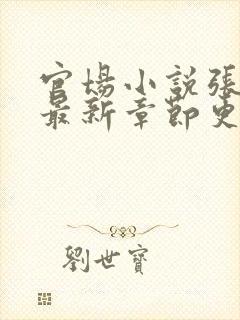 官場小說張
最新章節更
劉世寶